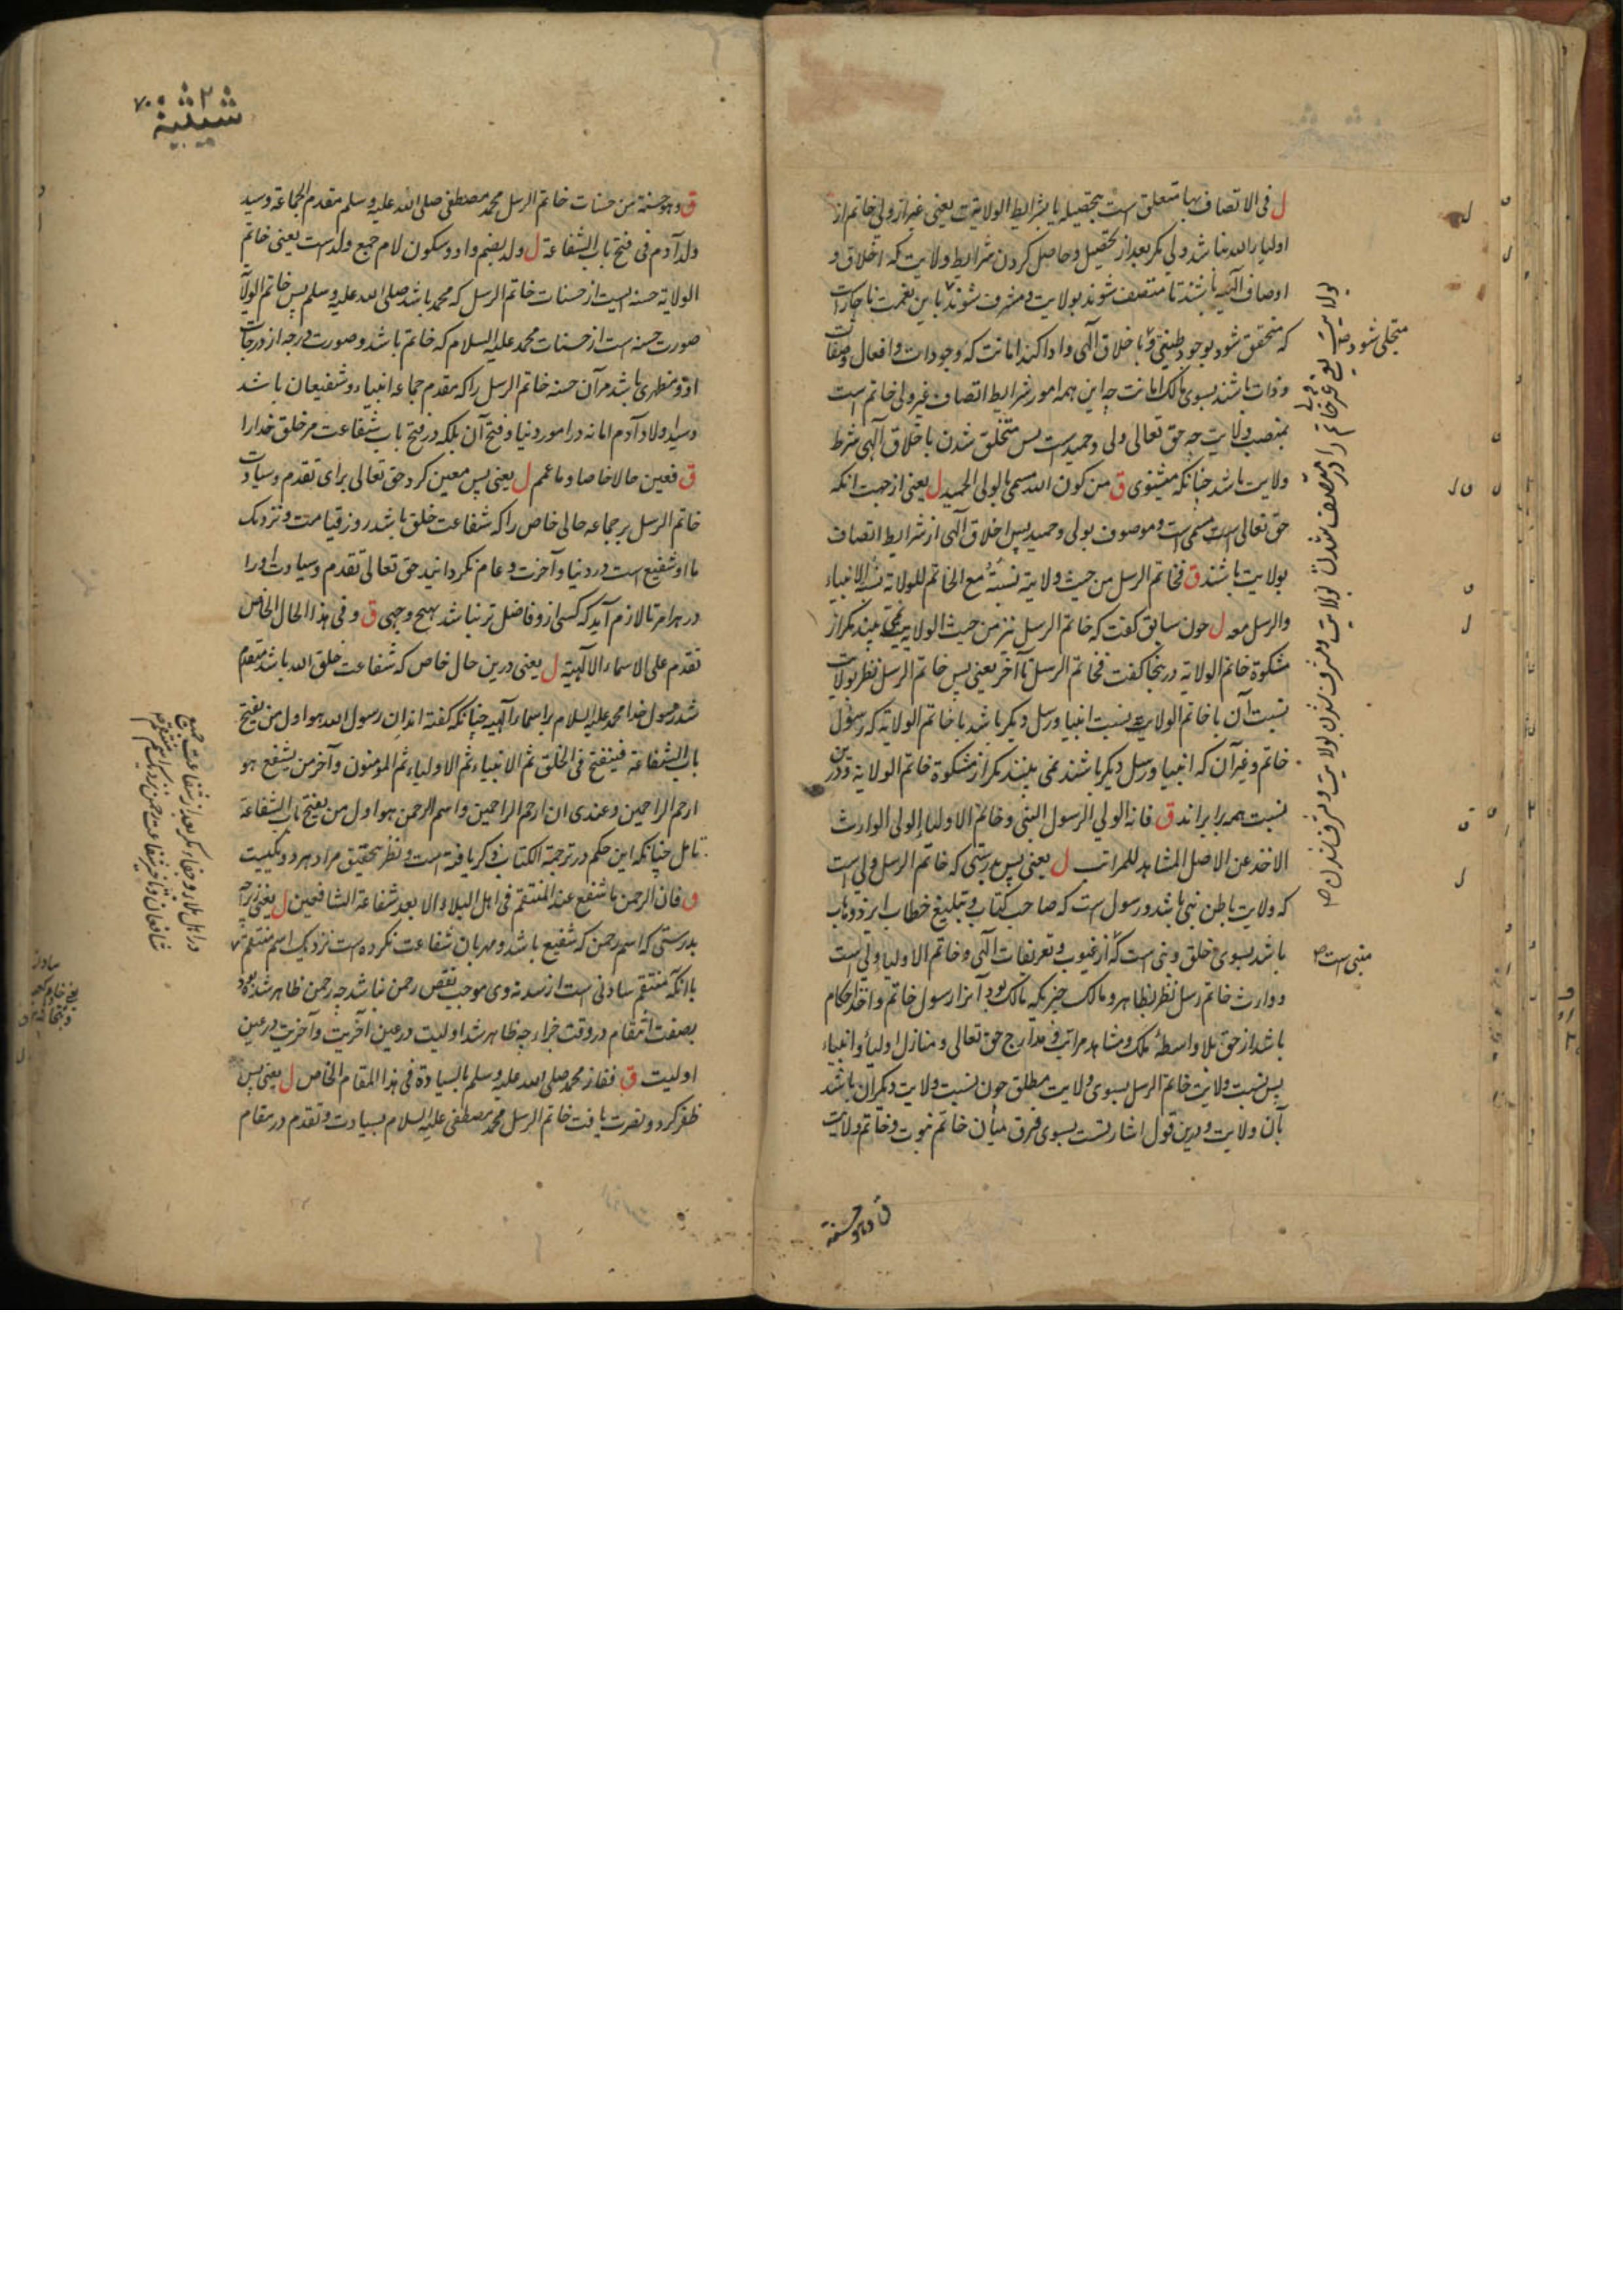 ل فی الاتصاف بها متعلق است بتحصیله یا بشرایط الولایة یعنی غیر از ولی خاتم از
اولیاء الله نباشد ولی مکر بعد از تحصیل و حاصل کردن شرایط ولایت که اخلاق و
اوصاف الهیه باشند تا متصف شوند بولایت و مشرف شوند باین نعمت
که متحقق شود بوجود و باخلاق الهی و ادا کند امانت که وجودات و افعال و صفات
و ذات باشند بسوی مالک امانت چه این همه امور شرایط اتصاف غیر ولی خاتم است
بمنصب ولایت چه حق تعالی ولی و حمید است پس متخلق شدن باخلاق الهی شرط
ولایت باشد چنانکه میشنوی ق من کون الله تسمی بالولی الحمید ل یعنی از جهت انکه
حق تعالی است مسمی است و موصوف بولی و حمید پس اخلاق الهی از شرایط اتصاف
بولایت باشند ق فخاتم الرسل من حیث ولایته نسبته مع الخاتم للولایة نسبة الانبیاء
والرسل معه ل چون سابق کفت که خاتم الرسل نیز من حیث الولایت نمی بیند مکر از
مشکوة خاتم الولایة درینجا کفت فخاتم الرسل تا آخر یعنی پس خاتم الرسل نظر بولایت
نسبت آن با خاتم الولایت نسبت انبیا و رسل دیکر باشد با خاتم الولایة که رسول
خاتم و غیر آن که انبیا و رسل دیکر باشند نمی بینند مکر از مشکوة خاتم الولایة و درین
نسبت همه برابراند ق فانه الولی الرسول النبی و خاتم الاولیاء الولی الوارث
الاخذ عن الاصل المشاهد للمراتب ل یعنی پس بدرستی که خاتم الرسل ولی است
که ولایت باطن نبی باشد و رسول است که صاحب کتاب و تبلیغ خطاب
باشد بسوی خلق و نبی است که از غیوب و تعریفات الهی و خاتم الاولیا ولی است
و وارث خاتم رسل نظر بظاهر و مالک چیزیکه مالک بود آنرا رسول خاتم و اخذ احکام
باشد از حق بلا واسطهٔ ملک و مشاهد مراتب و مدارج حق تعالی و منازل اولیاء و انبیاء
پس نسبت ولایت خاتم الرسل بسوی ولایت مطلق چون نسبت ولایت دیکران باشد
بآن ولایت و درین قول اشارتست بسوی فرق میان خاتم نبوت و خاتم ولایت
ق و هو حسنة
متجلی شود
منبی است
ق و هو حسنة من حسنات خاتم الرسل محمد مصطفی صلی الله علیه وسلم مقدم الجماعة و سید
ولد آدم فی فتح باب الشفاعة ل ولد بضم واو و سکون لام جمع ولد است یعنی خاتم
الولایة حسنه ایست از حسنات خاتم الرسل که محمد باشد صلی الله علیه وسلم پس خاتم الولایة
صورت حسنه است از حسنات محمد علیه السلام که خاتم باشد و صورت درجه از درجات
او و مظهری باشد مر آن حسنه خاتم الرسل را که مقدم جماعه انبیاء و شفیعان باشد
و سید اولاد آدم اما نه در امور دنیا و فتح آن بلکه در فتح باب شفاعت مر خلق خدا را
ق فعین حالا خاصا و ما عمم ل یعنی پس معین کرد حق تعالی برای تقدم و سیادت
خاتم الرسل بر جماعه حالی خاص را که شفاعت خلق باشد روز قیامت و نزدیک
ما او شفیع است در دنیا و آخرت و عام نکردانید حق تعالی تقدم و سیادت او را
در هر امر تا لازم آید که کسی از و فاضل تر نباشد بهیچ وجهی ق و فی هذا الحال الخاص
تقدم علی الاسماء الالهیة ل یعنی درین حال خاص که شفاعت خلق الله باشد متقدم
شد رسول خدا محمد علیه السلام بر اسماء الهیه چنانکه کفته اند ان رسول الله هو اول من یفتح
باب الشفاعة فیشفع فی الخلق ثم الانبیاء ثم الاولیاء ثم المومنون و آخر من یشفع هو
ارحم الراحمین و عندی ان ارحم الراحمین و اسم الرحمن هو اول من یفتح باب الشفاعة
تامل چنانکه این حکم در ترجمة الکتاب ذکر یافته است و نظر تحقیق مراد هر دو یکیست
ق فان الرحمن ما شفع عند المنتقم فی اهل البلاء الا بعد شفاعة الشافعین ل یعنی
بدرستی که اسم رحمن که شفیع باشد و مهربان شفاعت نکرده است نزدیک اسم منتقم
با انکه منتقم سادنی است از سدنه وی موجب نقص رحمن نباشد چه رحمن ظاهر شده بود
بصفت انتقام در وقت جزاء چه ظاهر شد اولیت در عین آخریت و آخریت در عین
اولیت ق ففاز محمد صلی الله علیه وسلم بالسیادة فی هذا المقام الخاص ل یعنی پس
ظفر کرد و نصرت یافت خاتم الرسل محمد مصطفی علیه السلام بسیادت و تقدم در مقام
در اهل بلا و جفاء مکر بعد از شفاعت جمیع